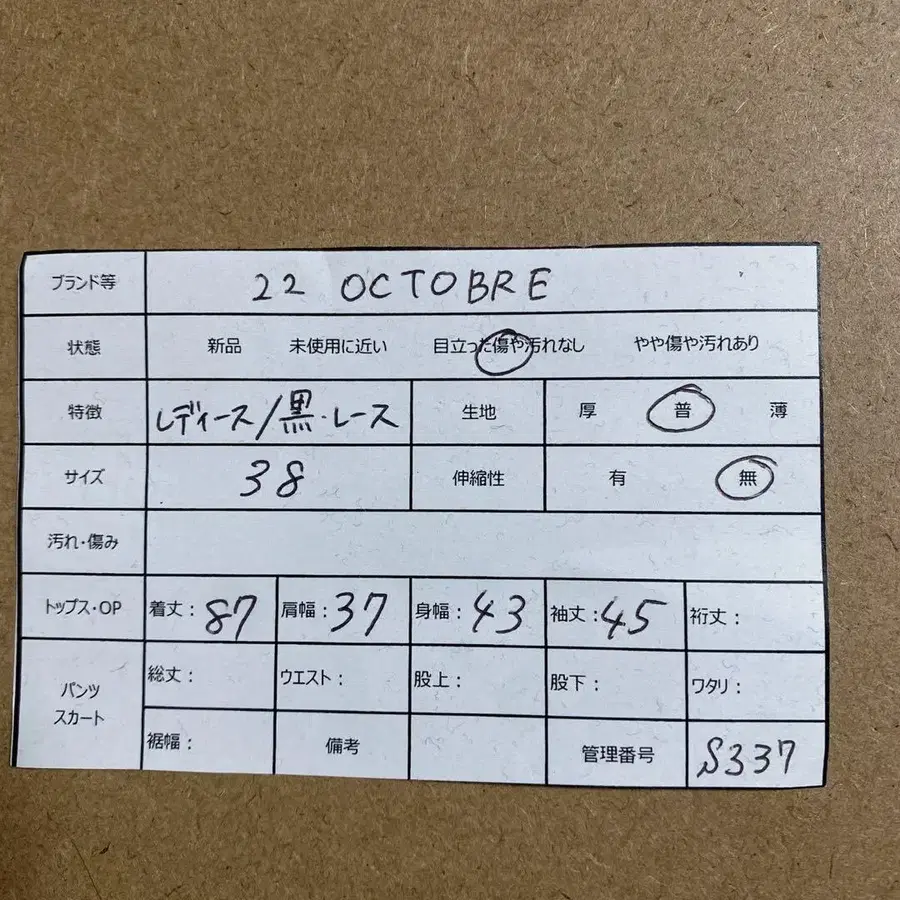 ブランド等 22 OCTOBRE
状態 新品 未使用に近い 目立った傷や汚れなし やや傷や汚れあり
特徴 レディース/黒・レース 生地 厚 普 薄
サイズ 38 伸縮性 有 無
汚れ・傷み
トップス・OP 着丈: 87 肩幅: 37 身幅: 43 袖丈: 45 裄丈:
パンツ
スカート
総丈: ウエスト: 股上: 股下: ワタリ:
裾幅: 備考 管理番号 S337